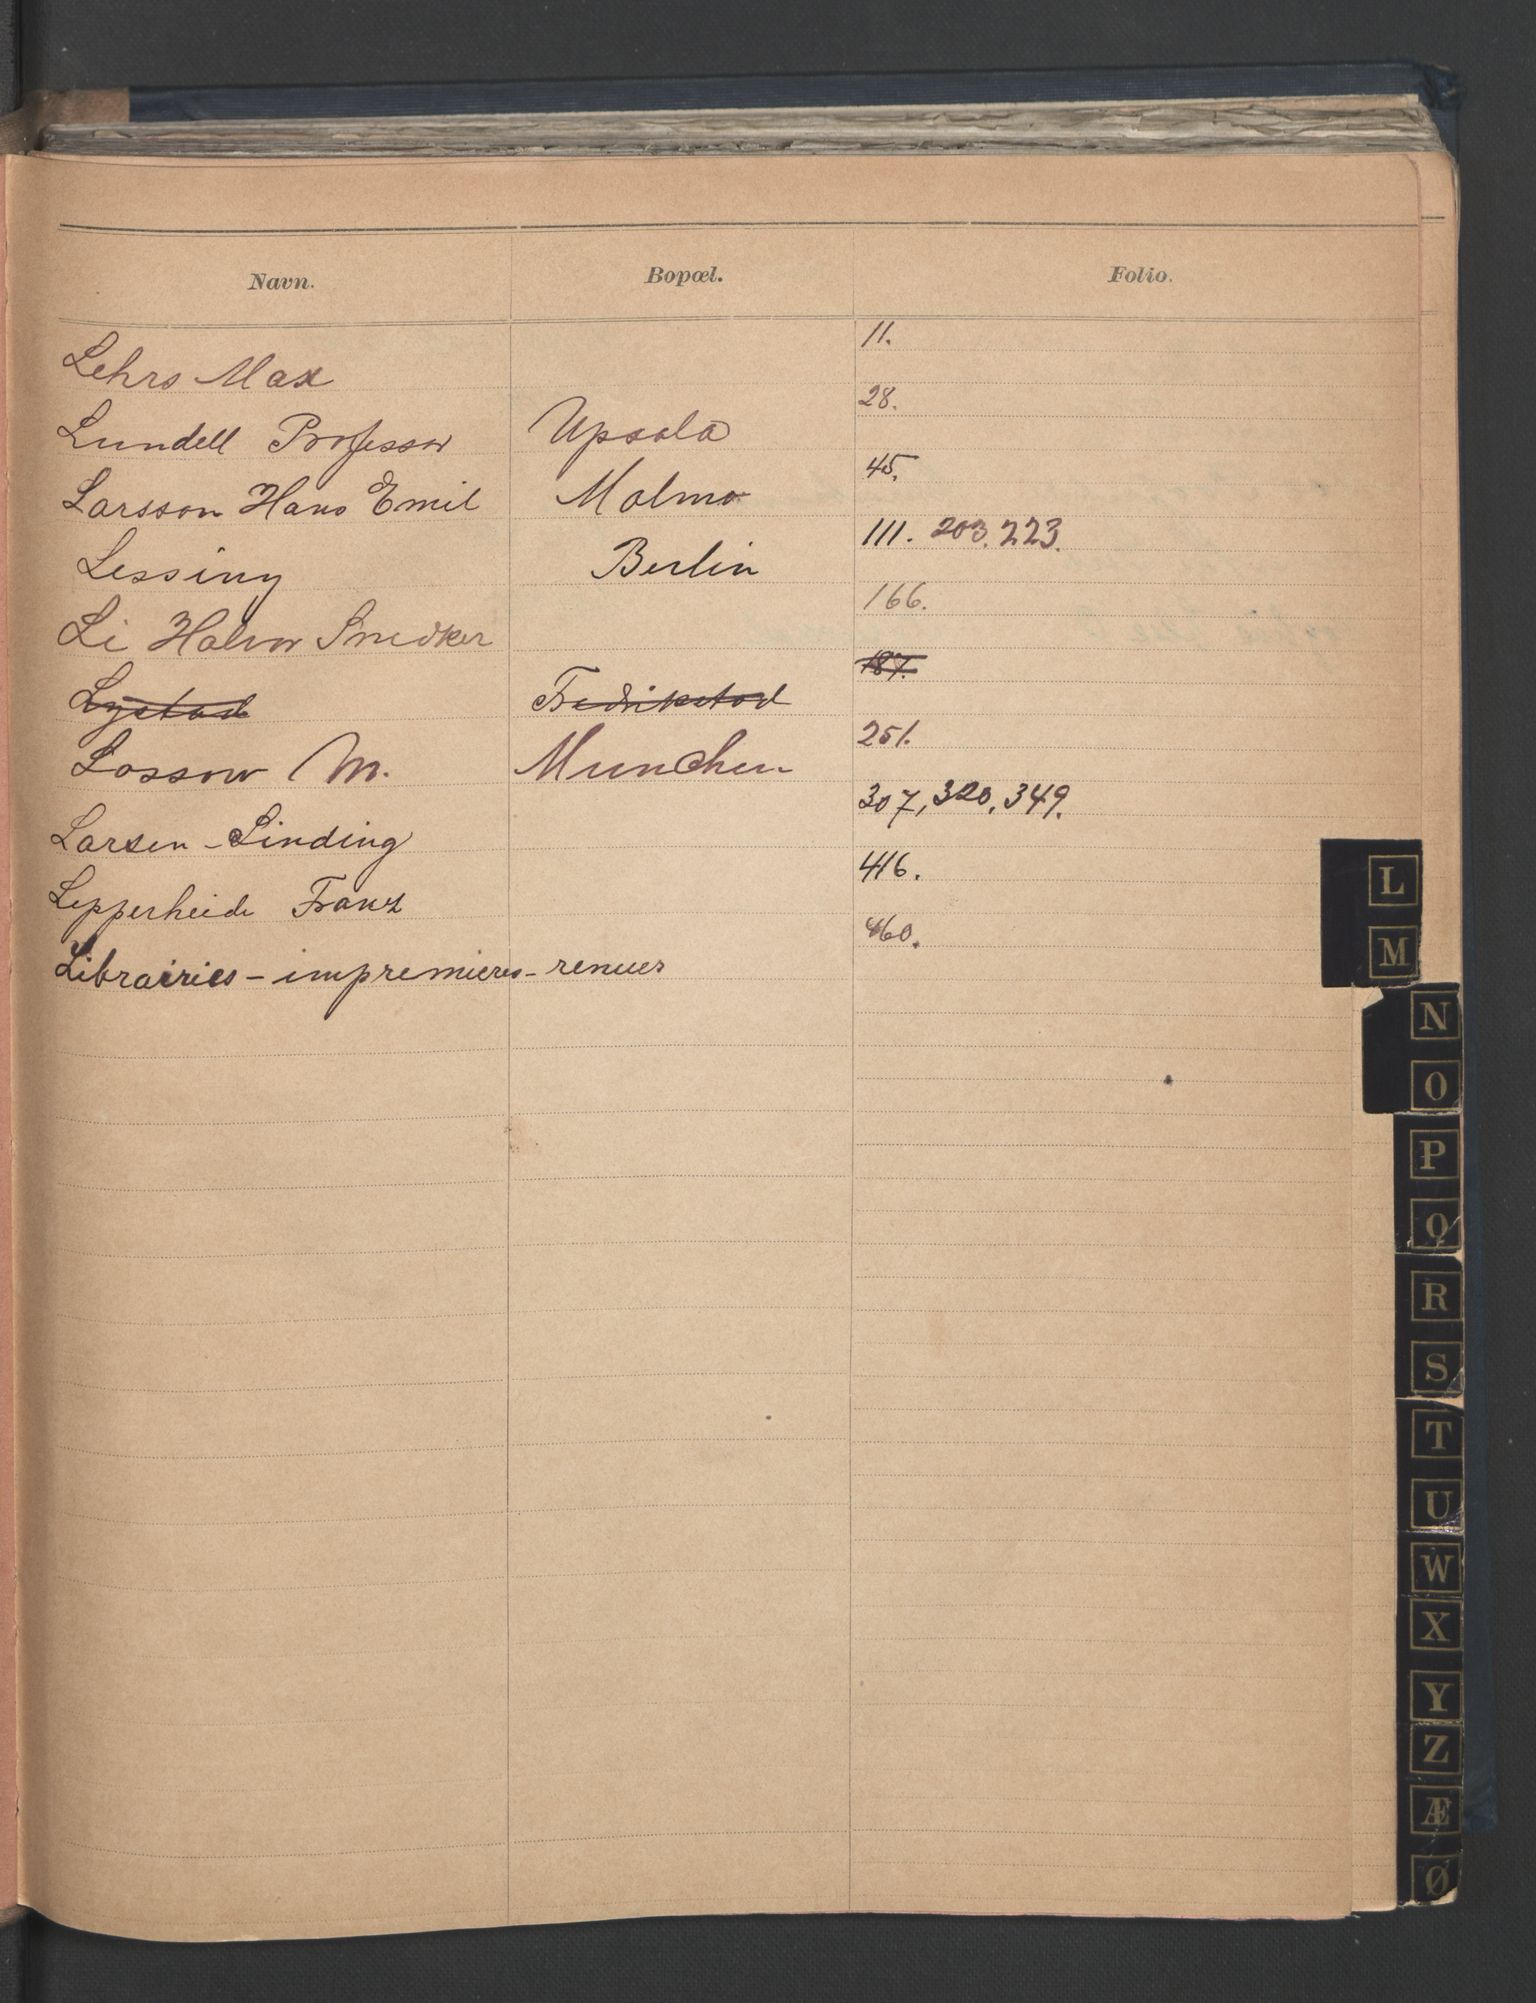 Navn. Bopæl. Folio.
Lehrs Max 11.
Lundell Professor Upsala 28.
Larsson Hans Emil Malmø 45.
Lessing Berlin 111. 203. 223.
Li Halvor Snedker 166.
Lystad Fredrikstad 187.
Lossow M. Munchen 251.
Larsen-Sinding 307, 320, 349.
Lepperheide Franz 416.
Librairies-impremieres-renuer 460.
L
M
N
O
P
Q
R
S
T
U
W
X
Y
Z
Æ
Ø